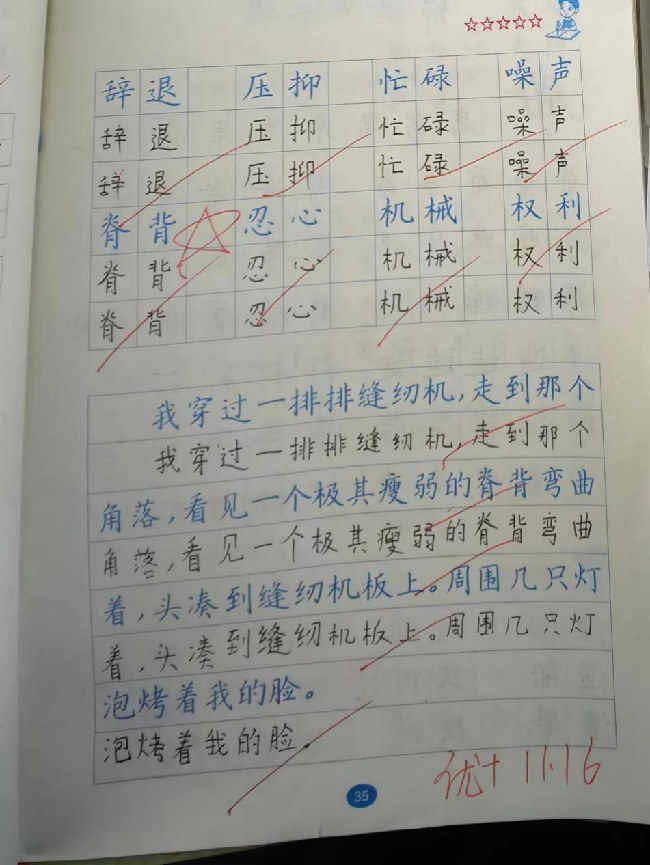 ☆☆☆☆☆
辞退 压抑 忙碌 噪声
辞退 压抑 忙碌 噪声
辞退 压抑 忙碌 噪声
脊背 忍心 机械 权利
脊背 忍心 机械 权利
脊背 忍心 机械 权利
我穿过一排排缝纫机,走到那个
我穿过一排排缝纫机,走到那个
角落,看见一个极其瘦弱的脊背弯曲
角落,看见一个极其瘦弱的脊背弯曲
着,头凑到缝纫机板上。周围几只灯
着,头凑到缝纫机板上。周围几只灯
泡烤着我的脸。
泡烤着我的脸.
优+ 11.16
35